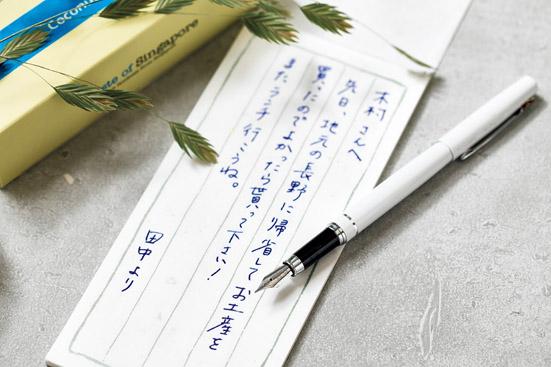 木村さんへ
先日、地元の長野に帰省してお土産を
買ったのでよかったら貰って下さい!
またランチ行こうね。
田中より
Coconu
te of Singapore